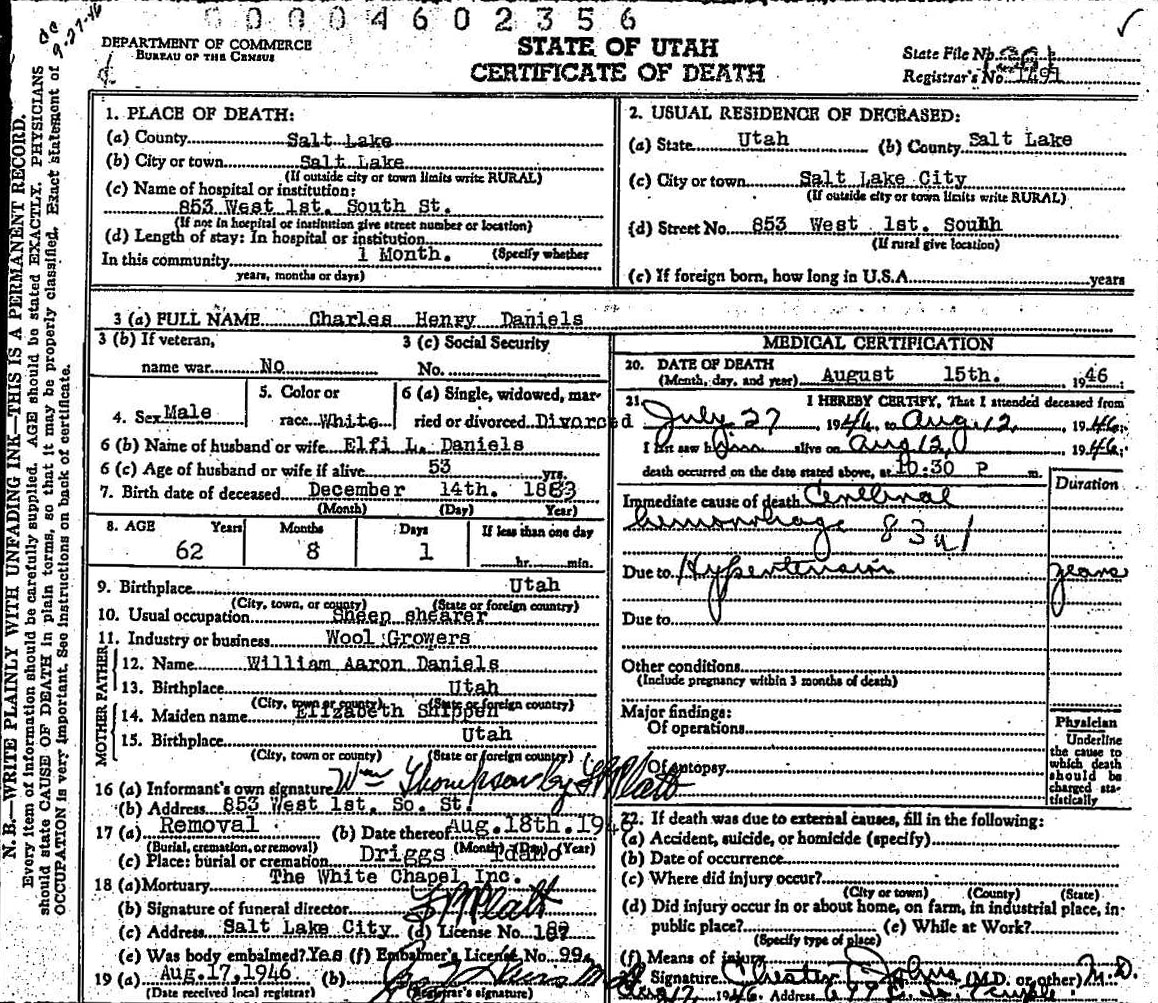 00004602356
de
9-27-46
DEPARTMENT OF COMMERCE
BUREAU OF THE CENSUS
STATE OF UTAH
CERTIFICATE OF DEATH
State File No.
Registrar's No. 1491
N. B.—WRITE PLAINLY WITH UNFADING INK—THIS IS A PERMANENT RECORD.
Every item of information should be carefully supplied. AGE should be stated EXACTLY. PHYSICIANS
should state CAUSE OF DEATH in plain terms, so that it may be properly classified. Exact statement of
OCCUPATION is very important. See instructions on back of certificate.
1. PLACE OF DEATH:
(a) County Salt Lake
(b) City or town Salt Lake
(If outside city or town limits write RURAL)
(c) Name of hospital or institution:
853 West 1st. South St.
(If not in hospital or institution give street number or location)
(d) Length of stay: In hospital or institution
In this community 1 Month. (Specify whether
years, months or days)
2. USUAL RESIDENCE OF DECEASED:
(a) State Utah (b) County Salt Lake
(c) City or town Salt Lake City
(If outside city or town limits write RURAL)
(d) Street No. 853 West 1st. South
(If rural give location)
(e) If foreign born, how long in U.S.A. years
3 (a) FULL NAME Charles Henry Daniels
3 (b) If veteran, 3 (c) Social Security
name war No No.
4. Sex Male 5. Color or race White 6 (a) Single, widowed, married or divorced Divorced
6 (b) Name of husband or wife Elfi L. Daniels
6 (c) Age of husband or wife if alive 53 yrs.
7. Birth date of deceased December 14th. 1883
(Month) (Day) Year)
8. AGE Years Months Days If less than one day
62 8 1 hr. min.
9. Birthplace Utah
(City, town, or county) (State or foreign country)
10. Usual occupation Sheep shearer
11. Industry or business Wool Growers
FATHER
12. Name William Aaron Daniels
13. Birthplace Utah
(City, town or county) (State or foreign country)
MOTHER
14. Maiden name Elizabeth Shippen
15. Birthplace Utah
(City, town or county) (State or foreign country)
16 (a) Informant's own signature Wm Thompson by F M Platt
(b) Address 853 West 1st. So. St.
17 (a) Removal (b) Date thereof Aug. 18th. 1946
(Burial, cremation, or removal) (Month) (Day) (Year)
(c) Place: burial or cremation Driggs Idaho
18 (a) Mortuary The White Chapel Inc.
(b) Signature of funeral director F M Platt
(c) Address Salt Lake City (d) License No.
(e) Was body embalmed? Yes (f) Embalmer's License No. 99
19 (a) Aug. 17, 1946 (b)
(Date received local registrar) (Registrar's signature)
MEDICAL CERTIFICATION
20. DATE OF DEATH
(Month, day, and year) August 15th. 1946
21. I HEREBY CERTIFY, That I attended deceased from
July 27 1946, to Aug 12, 1946.
I last saw him alive on Aug 12, 1946.
death occurred on the date stated above, at 10:30 P m.
Duration
Immediate cause of death Cerebral
hemorrhage 83a1
Due to Hypertension years
Due to
Other conditions
(Include pregnancy within 3 months of death)
Major findings:
Of operations
Of autopsy
Physician
Underline
the cause to
which death
should be
charged sta-
tistically
22. If death was due to external causes, fill in the following:
(a) Accident, suicide, or homicide (specify)
(b) Date of occurrence
(c) Where did injury occur?
(City or town) (County) (State)
(d) Did injury occur in or about home, on farm, in industrial place, in
public place? (e) While at Work?
(Specify type of place)
(f) Means of injury
Signature Chester (M.D. or other) M.D.
1946 Address